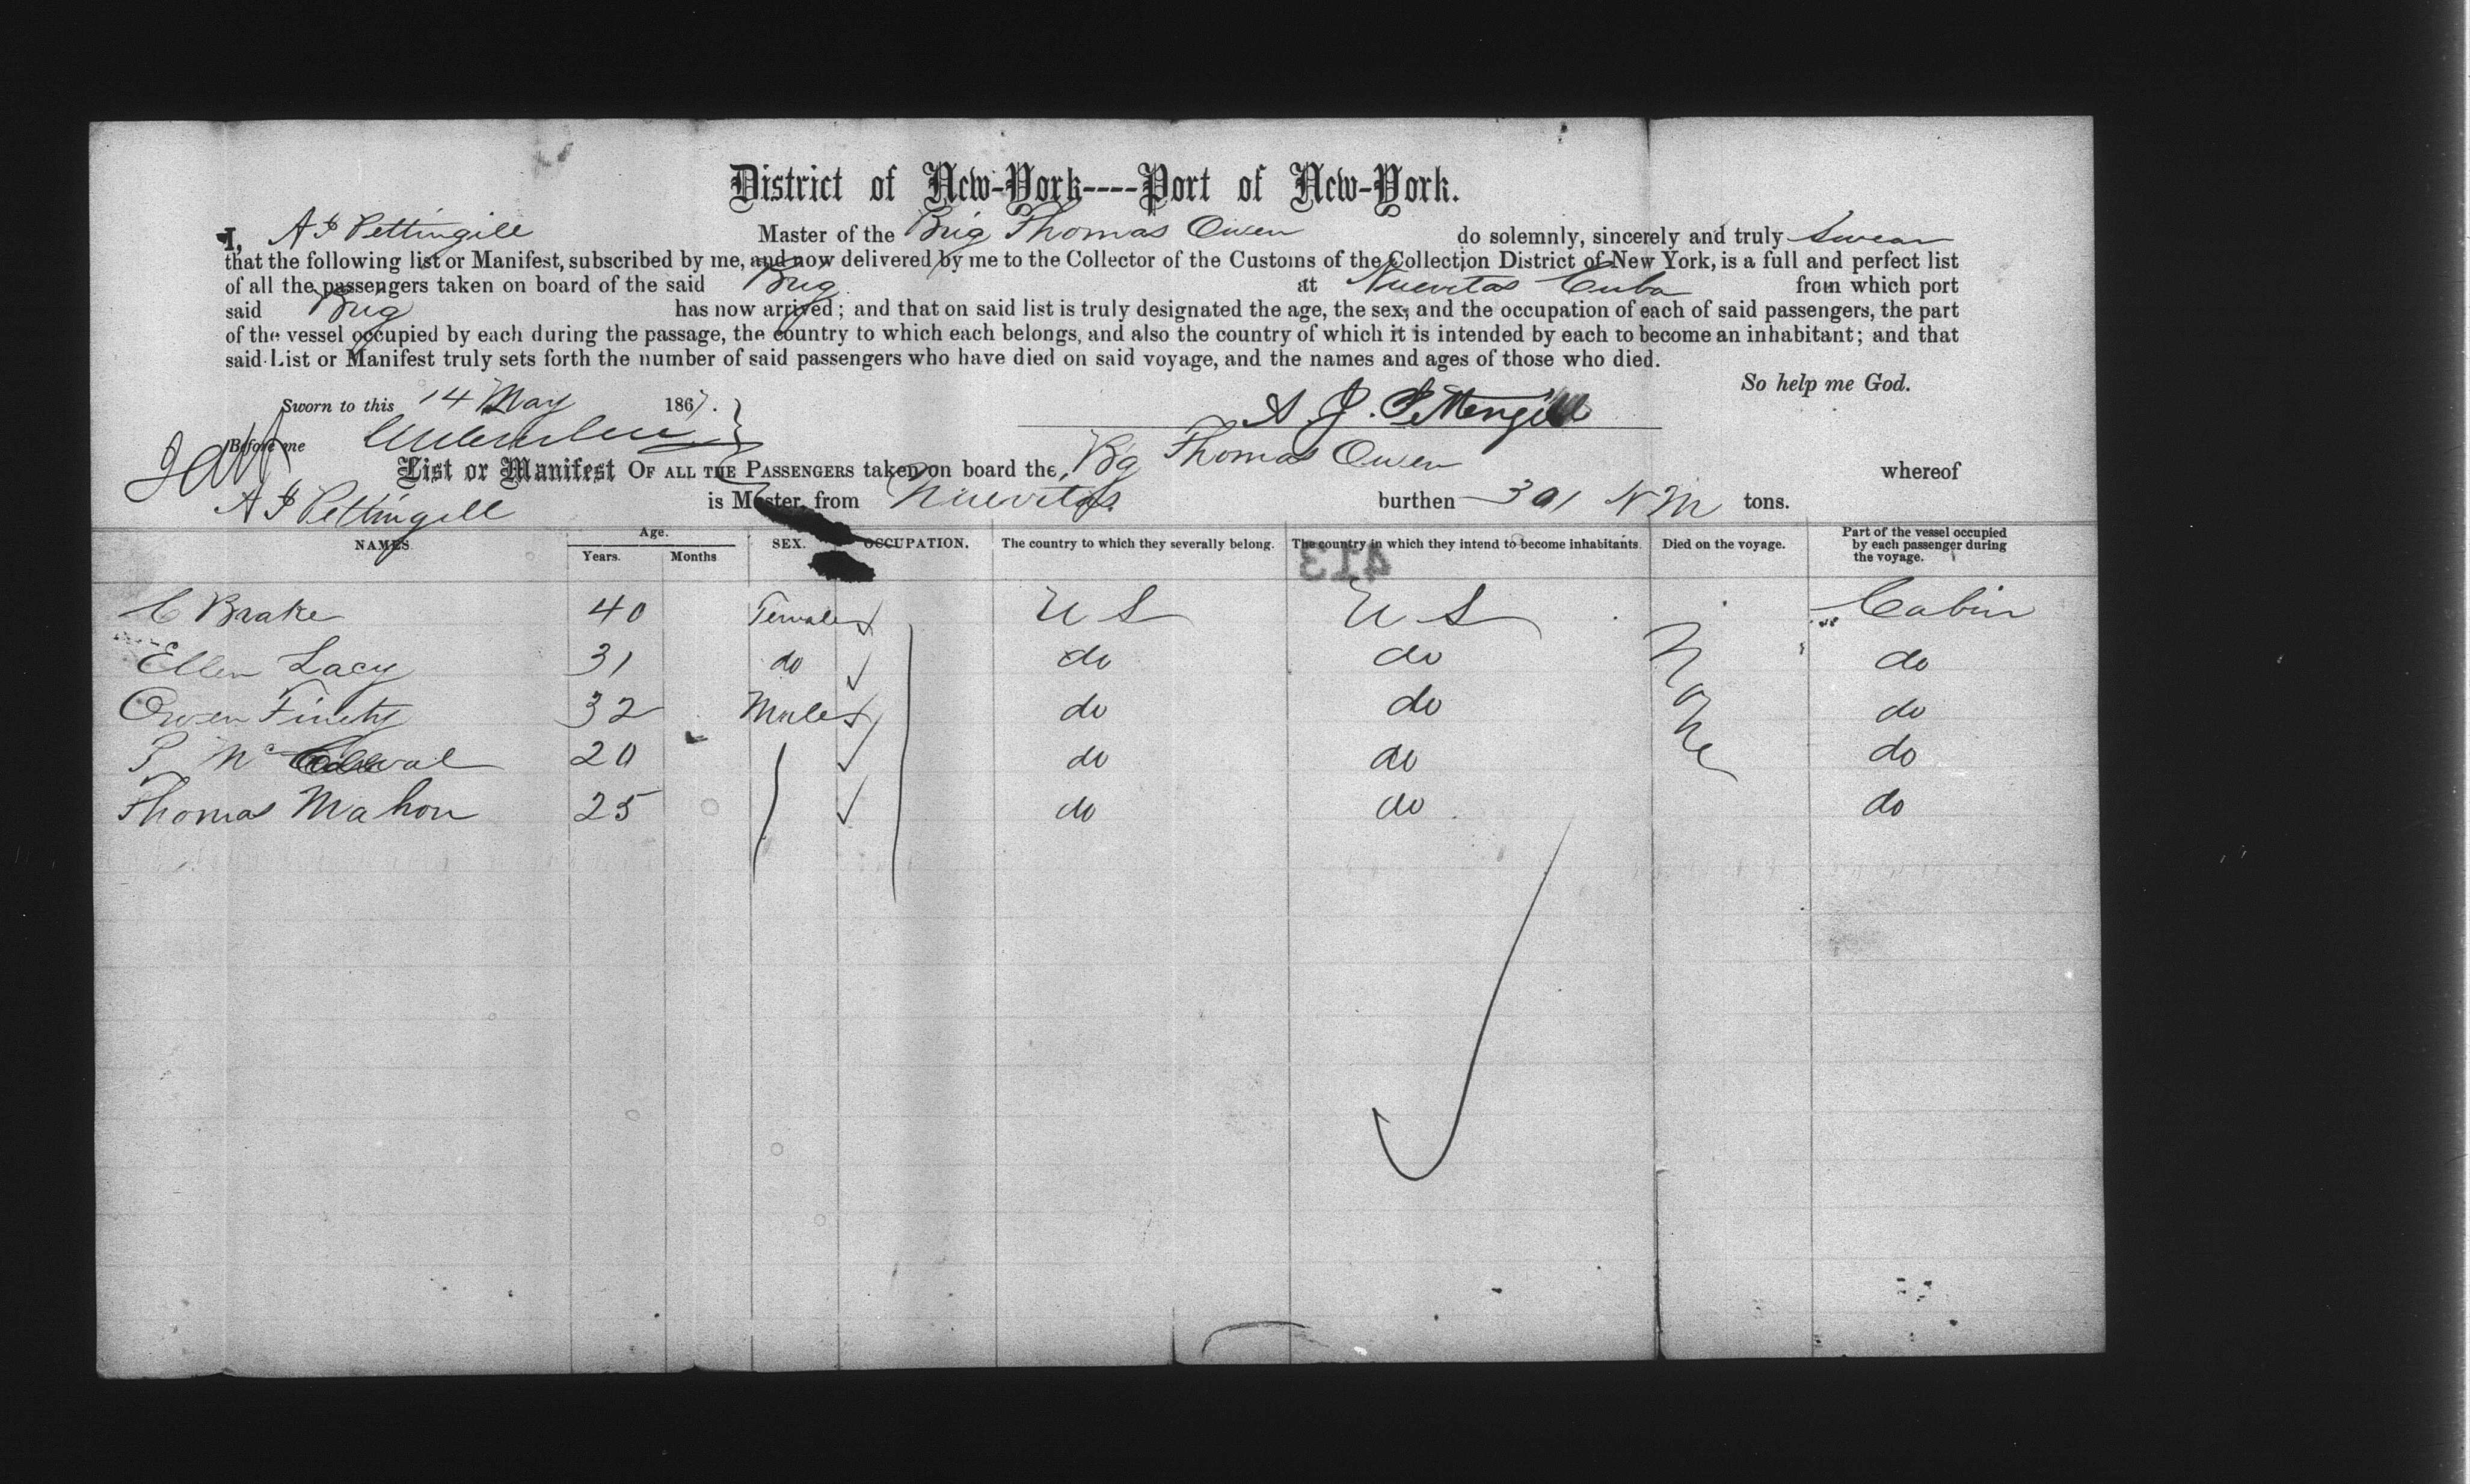 District of New-York----Port of New-York.
I, A J Pettingill Master of the Brig Thomas Owen do solemnly, sincerely and truly swear
that the following list or Manifest, subscribed by me, and now delivered by me to the Collector of the Customs of the Collection District of New York, is a full and perfect list
of all the passengers taken on board of the said Brig at Nuevitas Cuba from which port
said Brig has now arrived; and that on said list is truly designated the age, the sex, and the occupation of each of said passengers, the part
of the vessel occupied by each during the passage, the country to which each belongs, and also the country of which it is intended by each to become an inhabitant; and that
said List or Manifest truly sets forth the number of said passengers who have died on said voyage, and the names and ages of those who died.
So help me God.
Sworn to this 14 May 1867.
A. J. Pettengill
Before me
List or Manifest OF ALL THE PASSENGERS taken on board the Bg Thomas Owen whereof
A J Pettingill is Master, from Nuevitas burthen 301 N M tons.
NAMES Age. Years. Months SEX. OCCUPATION. The country to which they severally belong. The country in which they intend to become inhabitants. Died on the voyage. Part of the vessel occupied by each passenger during the voyage.
413
C Brake 40 Female U S U S Cabin
Ellen Lacy 31 do do do None do
Owen Finety 32 Male do do do
P Mc 20 do do do
Thomas Mahon 25 do do do